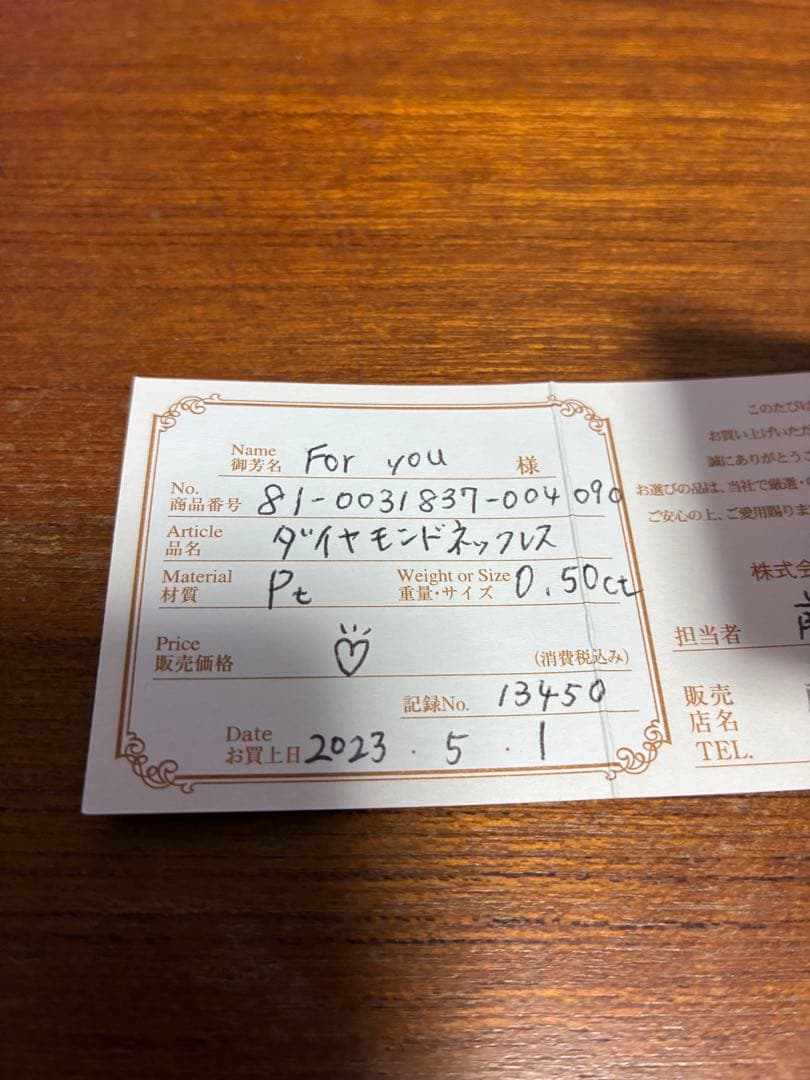 Name
御芳名 For you 様
No.
商品番号 81-0031837-004 090
Article
品名 ダイヤモンドネックレス
Material
材質 Pt
Weight or Size
重量・サイズ 0.50ct
Price
販売価格 ♡ (消費税込み)
記録No. 13450
Date
お買上日 2023・5・1
このたびは
お買い上げいただ
誠にありがとうご
お選びの品は、当社で厳選・
ご安心の上、ご愛用賜りま
株式会
担当者
販売
店名
TEL.